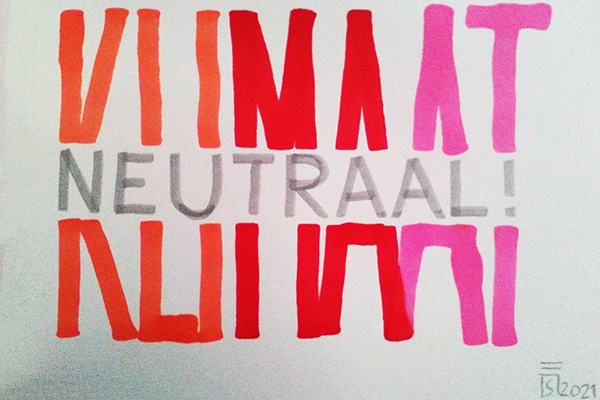 KLIMAAT
NEUTRAAL!
2021